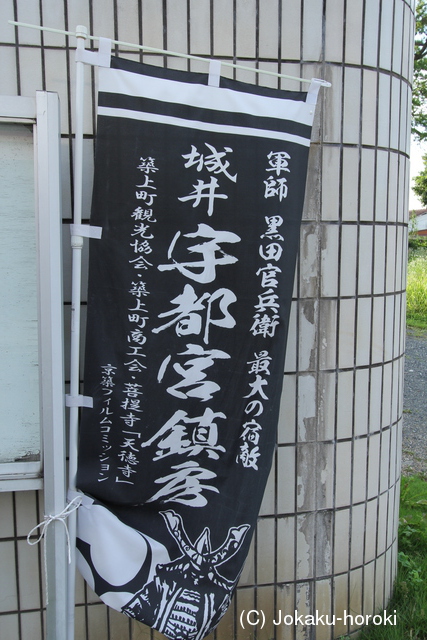 軍師 黒田官兵衛 最大の宿敵
城井 宇都宮鎮房
築上町観光協会・築上町商工会・菩提寺「天徳寺」
京築フィルムコミッション
(C) Jokaku-horoki